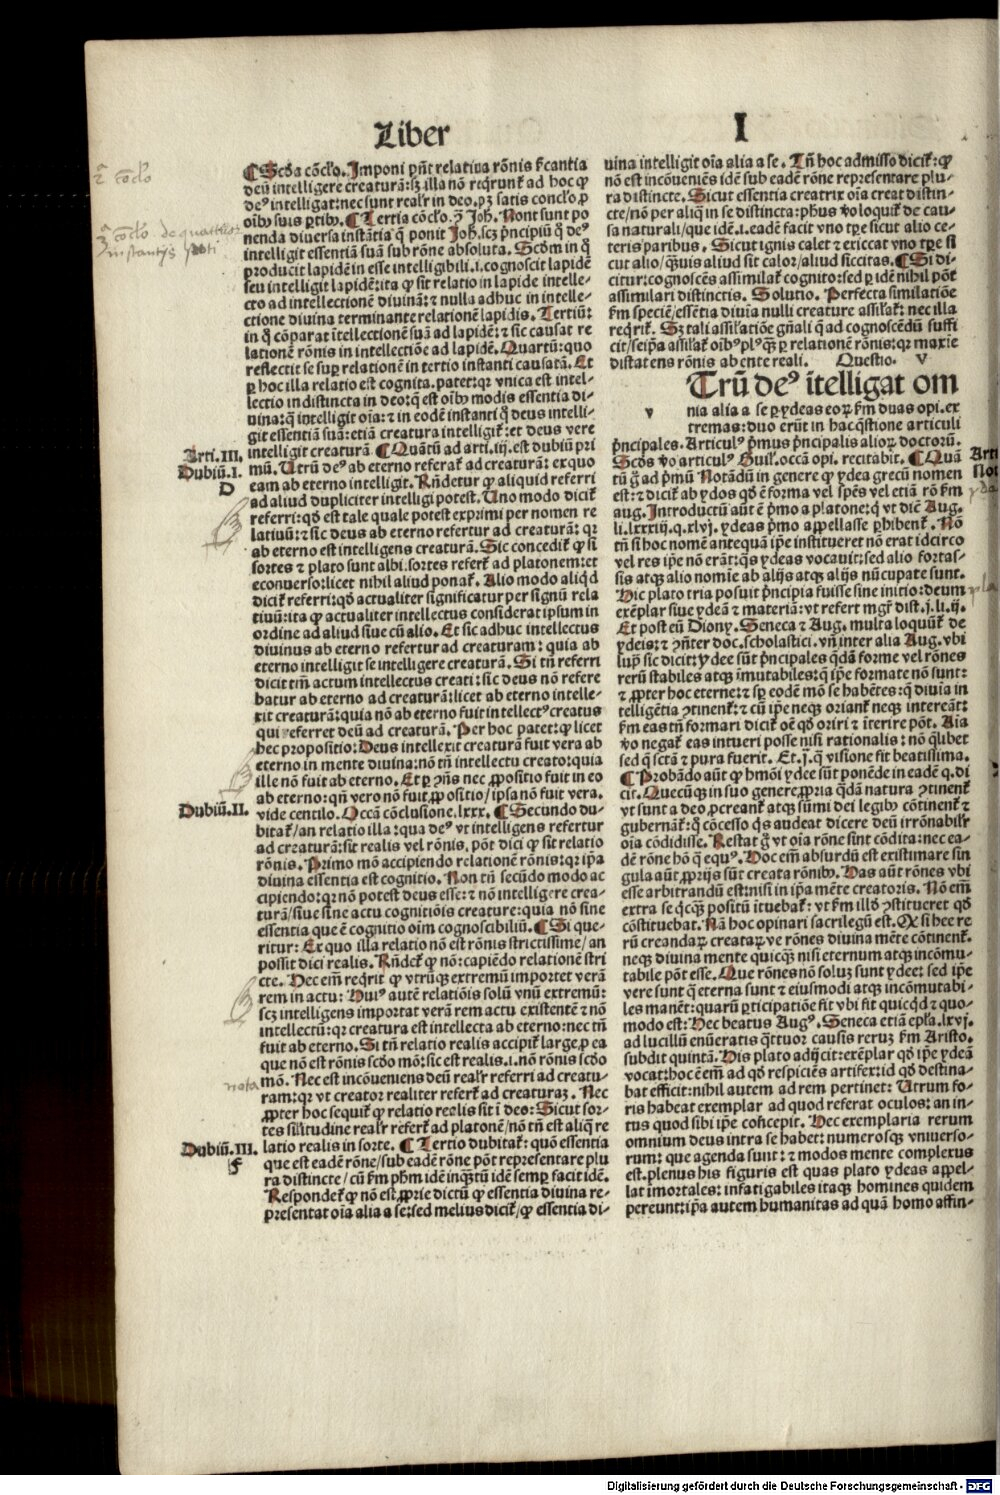 Liber I
¶ Scďa cōclo. Imponi pn̄t relatiua rōnis ſcantia
deū intelligere creaturā: sꝫ illa nō reqrunť ad hoc ꝙ
deꝰ intelligat: nec sunt realr̄ in deo. pꝫ satis conclo ꝓ
oībꝰ suis ꝑtibꝰ. ¶ Tertia cōclo. ꝯ̄ Joh. Nont sunt po
nenda diuersa instātia q̄ ponit Joh. scꝫ pn̄cipiū ꝙ deꝰ
intelligit essentiā suā sub rōne absoluta. Scďm in q̄
producit lapidē in esse intelligibili .i. cognoscit lapidē
seu intelligit lapidē: ita ꝙ sit relatio in lapide intelle-
cto ad intellectionē diuinā: ⁊ nulla adhuc in intelle-
ctione diuina terminante relationē lapidis. Tertiū:
in q̄ cōparat ītellectionē suā ad lapidē: ⁊ sic causat re
lationē rōnis in intellectiōe ad lapidē. Quartū: quo
reflectit se suꝑ relationē in tertio instanti causatā. Et
ꝑ hoc illa relatio est cognita. patet: qr vnica est intel-
lectio indistincta in deo: q̄ est oībꝰ modis essentia di-
uina: q̄ intelligit oīa: ⁊ in eodē instanti q̄ deus intelli-
git essentiā suā: etiā creatura intelligiť: et deus vere
intelligit creaturā ¶ Quātū ad arti. iij. est dubiū pri
mū. Utrū deꝰ ab eterno referať ad creaturā: ex quo
eam ab eterno intelligit. Rn̄detur ꝙ aliquid referri
ad aliud dupliciter intelligi potest. Uno modo diciť
referri: qď est tale quale potest exprimi per nomen re
latiuū: ⁊ sic deus ab eterno refertur ad creaturā: qr
ab eterno est intelligens creaturā. Sic concediť ꝙ si
sortes ⁊ plato sunt albi. sortes refert ad platonem: et
econuerso: licet nihil aliud ponať. Alio modo aliqď
diciť referri: qď actualiter significatur per signū rela
tiuū: ita ꝙ actualiter intellectus considerat ipsum in
ordine ad aliud siue cū alio. Et sic adhuc intellectus
diuinus ab eterno refertur ad creaturam: quia ab
eterno intelligit se intelligere creaturā. Si tn̄ referri
dicit tm̄ actum intellectus creati: sic deus nō refere
batur ab eterno ad creaturā: licet ab eterno intelle-
xit creaturā: quia nō ab eterno fuit intellectꝰ creatus
qui referret deū ad creaturā. Per hoc patet: ꝙ licet
hec propositio: Deus intellexit creaturā fuit vera ab
eterno in mente diuina: nō tn̄ intellectu creato: quia
ille nō fuit ab eterno. Et ꝑ ꝯn̄s nec ꝓpositio fuit in eo
ab eterno: qn̄ vero nō fuit ꝓpositio/ ipsa nō fuit vera.
vide centilo. Occā cōclusione. lxxx. ¶ Secundo du-
bitať/ an relatio illa: qua deꝰ vt intelligens refertur
ad creaturā: sit realis vel rōnis. pōt dici ꝙ sit relatio
rōnis. Primo mō accipiendo relationē rōnis: qr ipa
diuina essentia est cognitio. Non tn̄ secūdo modo ac
cipiendo: qr nō potest deus esse: ⁊ nō intelligere crea-
turā/ siue sine actu cognitiōis creature: quia nō sine
essentia que ē cognitio oim cognoscibiliū. ¶ Si que-
ritur: Ex quo illa relatio nō est rōnis strictissime/ an
possit dici realis. Rn̄deť ꝙ nō: capiēdo relationē stri
cte. Hec em̄ reqrit ꝙ vtrūqꝫ extremū importet verā
rem in actu: Huiꝰ autē relatiōis solū vnū extremū:
scꝫ intelligens importat verā rem actu existentē ⁊ nō
intellectū: qr creatura est intellecta ab eterno: nec tn̄
fuit ab eterno. Si tn̄ relatio realis accipiť large ꝓ ea
que nō est rōnis scďo mō: sic est realis .i. nō rōnis scďo
mō. Nec est incōueniens deū realr̄ referri ad creatu-
ram: qr vt creator realiter referť ad creaturaꝫ. Nec
ꝓpter hoc sequiť ꝙ relatio realis sit ī deo: Sicut sor-
tes silitudine realr̄ referť ad platonē/ nō tn̄ est aliq̄ re
latio realis in sorte. ¶ Tertio dubitať: quō essentia
que est eadē rōne/ sub eadē rōne pōt representare plu
ra distincte/ cū ſm phm̄ idē inqꝫtū idē sempꝑ facit idē.
Respondeť ꝙ nō est ꝓprie dictū ꝙ essentia diuina re-
presentat oīa alia a se: sed melius diciť/ ꝙ essentia di-
Arti. III.
Dubiū. I.
D
Dubiū. II.
nota
Dubiū. III.
F
uina intelligit oīa alia a se. Tn̄ hoc admisso diciť: ꝙ
nō est incōueniēs idē sub eadē rōne representare plu-
ra distincte. Sicut essentia creatrix oīa creat distin-
cte/ nō per aliq̄ in se distincta: phus v̄o loquiť de cau-
sa naturali/ que idē .i. eadē facit vno tpre sicut alio ce-
teris paribus. Sicut ignis calet ⁊ exiccat vno tpre si
cut alio/ qꝫuis aliud sit calor/ aliud siccitas. ¶ Si di-
citur: cognoscēs assimilať cognito: sed ꝑ idē nihil pōt
assimilari distinctis. Solutio. Perfecta similatiōe
ſm speciē/ essētia diuīa nulli creature assilať: nec illa
reqriť. Sꝫ tali assilatiōe gn̄ali q̄ ad cognoscēdū suffi
cit/ seipa assilať oībꝰ plꝰqꝫ ꝑ relationē rōnis: qr maxīe
distat ens rōnis ab ente reali. Questio. V
Trū deꝰ ītelligat om
v nia alia a se ꝑ ydeas eoꝝ ſm duas opi. ex
tremas: duo erūt in hac qstione articuli
pn̄cipales. Articulꝰ pmus pn̄cipalis alioꝝ doctorū.
Scďs v̄o articulꝰ Guil. occā opi. recitabit. ¶ Quā
tū ḡ ad pmū Notādū in genere ꝙ ydea grecū nomen
est: ⁊ diciť ab ydos qď ē forma vel spēs vel etiā rō ſm
aug. Introductū aūt ē pmo a platone: q̄ vt dic̄ Aug.
li. lxxxiij. q. xlvj. ydeas pmo appellasse ꝑhibenť. Nō
tn̄ si hoc nomē antequā ipe institueret nō erat idcirco
vel res ipe nō erāt: q̄s ydeas vocauit: sed alio fortas-
sis atqꝫ alio nomīe ab alijs atqꝫ alijs nūcupate sunt.
Hic plato tria posuit pn̄cipia fuisse sine initio: deum
exēplar siue ydeā ⁊ materiā: vt refert mgr̄ dist. j. li. ij.
Et post eū Diony. Seneca ⁊ Aug. multa loquūť de
ydeis: ⁊ ꝯn̄ter doc. scholastici. vn̄ inter alia Aug. vbi
sup̄ sic dicit: ydee sūt pn̄cipales q̄dā forme vel rōnes
rerū stabiles atqꝫ īmutabiles: q̄ ipe formate nō sunt:
⁊ ꝓpter hoc eterne: ⁊ sꝑ eodē mō se habētes: q̄ diuīa in
telligētia ꝯtinenť: ⁊ cū ipe neqꝫ orianť neqꝫ intereāt:
ſm eas tn̄ formari diciť oē qď oriri ⁊ īterire pōt. Aīa
v̄o negať eas intueri posse nisi rationalis: nō q̄libet
sed q̄ sctā ⁊ pura fuerit. Et .j. q̄ visione fit beatissima.
¶ Probādo aūt ꝙ hmōi ydee sūt ponēde in eadē q. di
cit. Quecūqꝫ in suo genere ꝓpria q̄dā natura ꝯtinenť
vt sunt a deo ꝓcreanť atqꝫ sūmi dei legibꝰ cōtinenť ⁊
gubernāť: q̄ cōcesso q̄s audeat dicere deū irrōnabilr̄
oīa cōdidisse. Restat ḡ vt oīa rōne sint cōdita: nec ea-
dē rōne hō q̄ equꝰ. Hoc em̄ absurdū est existimare sin
gula aūt ꝓprijs sūt creata rōnibꝰ. Has aūt rōnes vbi
esse arbitrandū est: nisi in ipa mēte creatoris. Nō em̄
extra se q̄cqꝫ positū ītuebať: vt ſm illď ꝯstitueret qď
cōstituebat. Nā hoc opinari sacrilegū est. Qꝫ si hec re
rū creandaꝝ creataꝝve rōnes diuina mēte cōtinenť.
neqꝫ diuina mente quicqꝫ nisi eternum atqꝫ incōmu-
tabile pōt esse. Que rōnes nō soluꝫ sunt ydee: sed ipe
vere sunt q̄ eterna sunt ⁊ eiusmodi atqꝫ incōmutabi-
les manēt: quarū ꝑticipatiōe fit vbi fit quicqď ⁊ quo-
modo est: Hec beatus Augꝰ. Seneca etiā epla. lxvj.
ad lucillū enūeratis q̄ttuor causis reruꝫ ſm Aristo.
subdit quintā. His plato adijcit: exēplar qď ipe ydeā
vocat: hoc ē em̄ ad qď respiciēs artifex: id qď destina-
bat efficit: nihil autem ad rem pertinet: Utrum fo-
ris habeat exemplar ad quod referat oculos: an in-
tus quod sibi ipe coñcepit. Hec exemplaria rerum
omnium deus intra se habet: numerosqꝫ vniuerso-
rum: que agenda sunt: ⁊ modos mente complexus
est. plenus his figuris est quas plato ydeas appel-
lat imortales: infatigabiles itaqꝫ homines quidem
pereunt: ipa autem humanitas ad quā homo affin-
Arti
Not
Digitalisierung gefördert durch die Deutsche Forschungsgemeinschaft - DFG